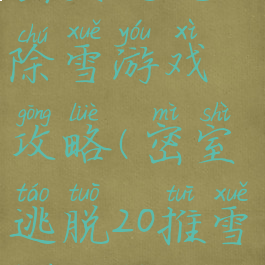 chú xuě yóu xì
除雪游戏
gōng lüè mì shì
攻略(密室
táo tuō tuī xuě
逃脱20推雪